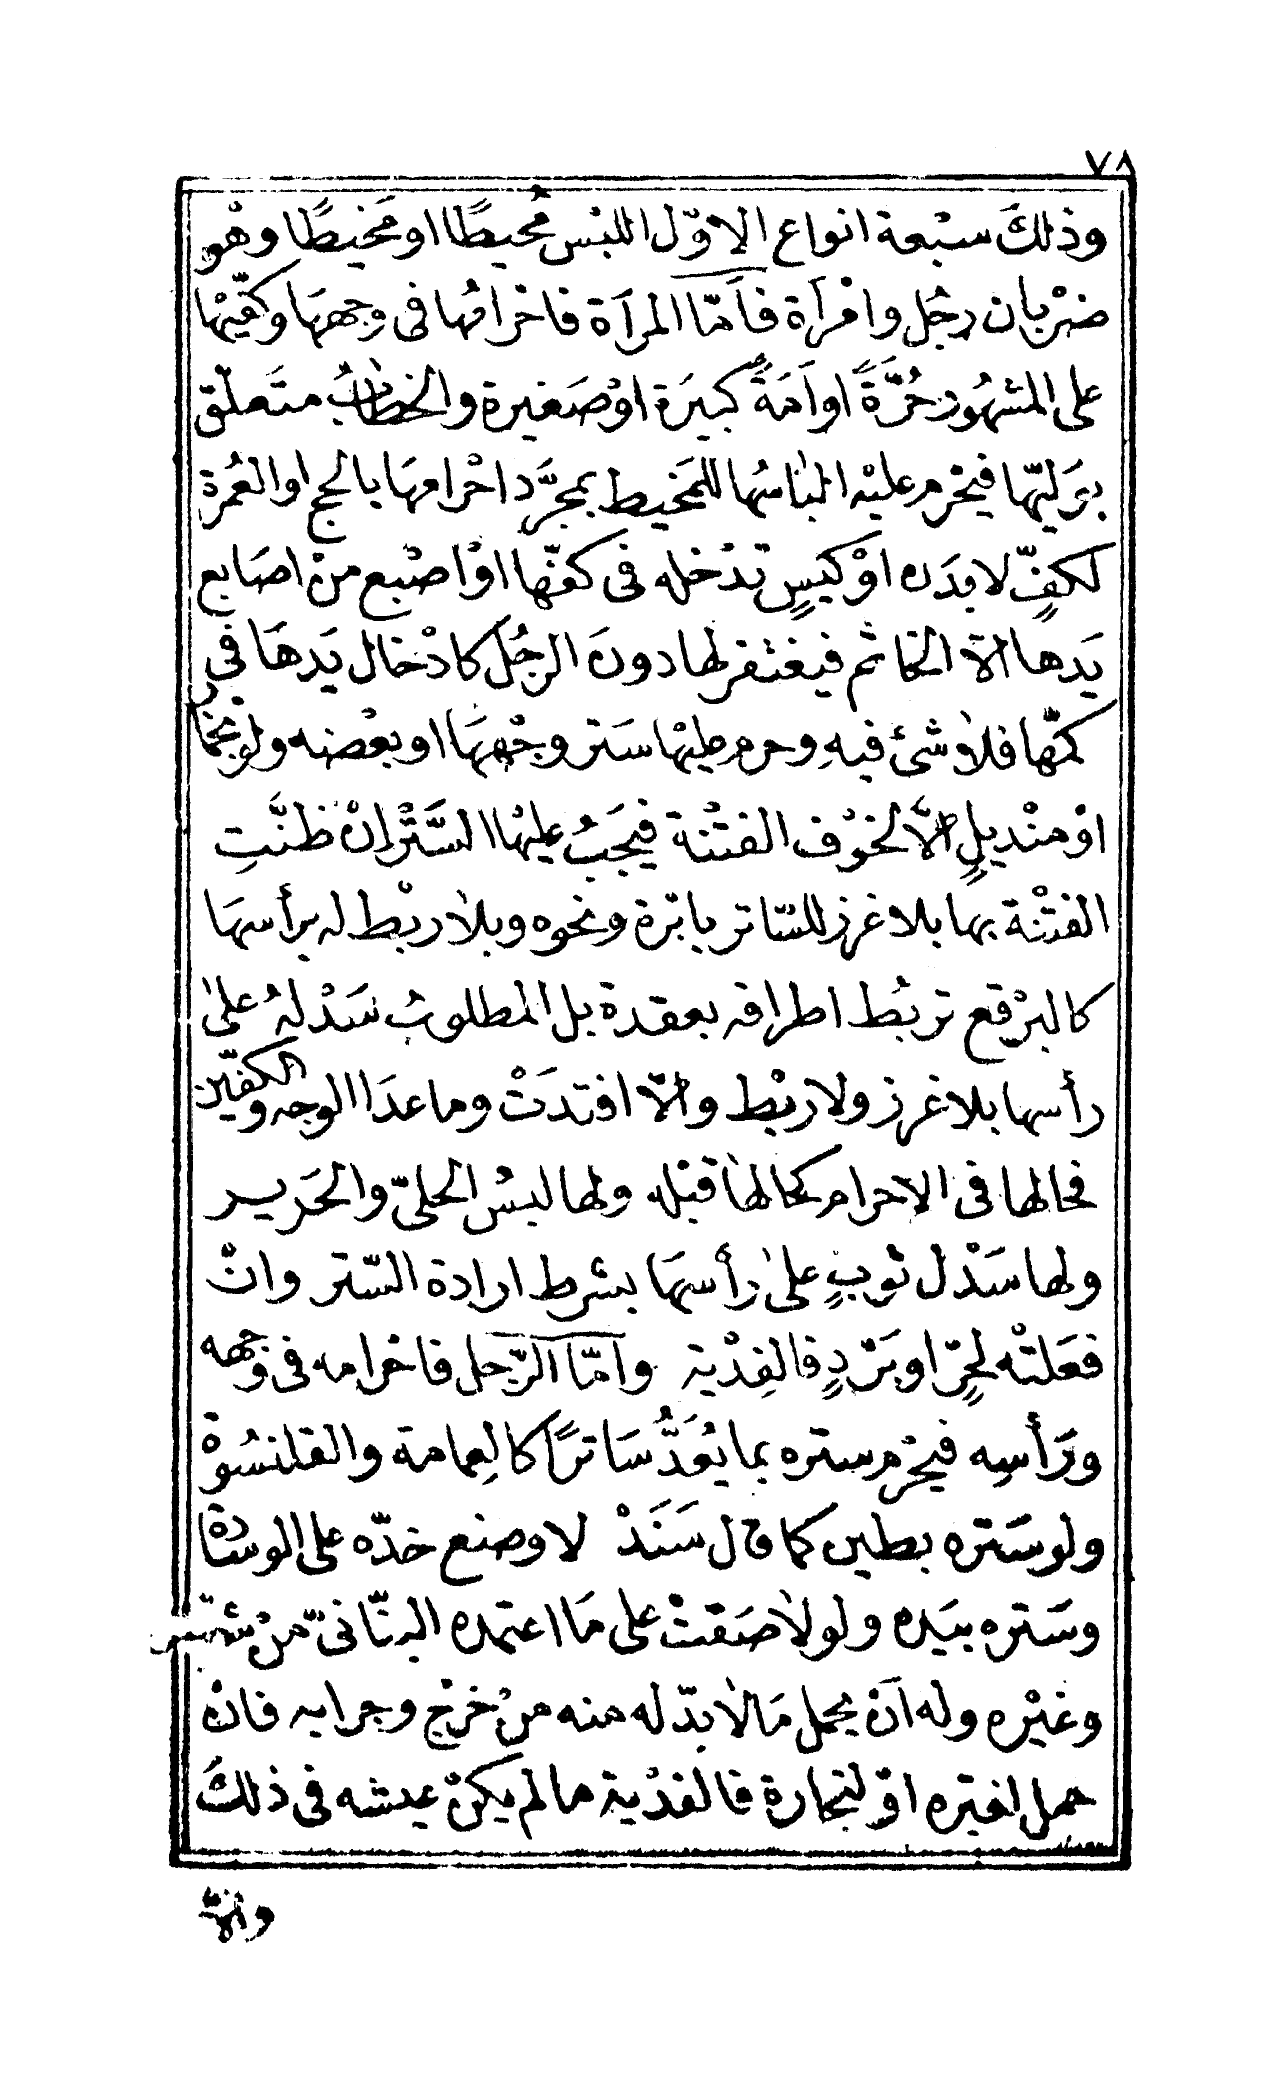 ٧٨
وذلكَ سبْعة انواع الاوّل اللبْس مُحيطًا او مَخيطًا وهْو
ضرْبان رجُل وامْرأة فأمّا المرأة فاحْرامُها فى وجههَا وكفّيْها
على المشهُور حُرّةً او أمَةً كبيرَة اوْ صَغيرة والخطابُ متَعلّق
بوَليّها فيحْرم عليْه البَاسُها للمَخيط بمجرَّد احْرامهَا بالحج او العُمرة
لكفٍّ لا بدَن اوْ كيسٍ تدْخله فى كفّها اوْ اصْبع منْ اصَابع
يَدها الاّ الخَاتم فيغتفر لها دونَ الرجُل كادْخال يَدهَا فى
كمّها فلا شئ فيهِ وحرم عليْها سَتر وجْههَا او بعْضه ولو بخمَار
اوْ منْديلٍ الاّ لخوْف الفتْنة فيجَبُ عليهْا السَّتْر انْ ظنَّتِ
الفتْنة بها بلا غرز للسّاتر بابْرة ونحوه وبلا ربْط له برأسهَا
كالبرْقع تربُط اطرافه بعقدة بل المطلوبُ سَدْلهُ على
رأسها بلا غرز ولا ربْط والاّ افتدَتْ وما عدَا الوجه والكفّين
فحالها فى الاحرام كحالهَا قبْله ولها لبسُ الحلىّ والحَرير
ولها سَدْل ثوْبٍ على رأسهَا بشرط ارادة السّتر وانْ
فعَلتْه لحرٍّ او بَرْدٍ فالفِدْية وأمّا الرّجل فاحْرامه فى وجهه
ورَأسِه فيحْرم ستره بما يُعَدُّ سَاترًا كالعِمامة والقلنسُوة
ولو سَتره بطين كما قال سَنَدْ لا وضع خدّه على الوسَادة
وسَتره بيَده ولو لاصَقتْ على مَا اعتمده البنّانىّ منْ شمْس
وغيْره وله أنْ يحمل مَا لا بدّ له منه منْ خرْج وجرابه فانْ
حمل لغيره اوْ لتجارة فالفدْية ما لم يكنْ عيشه فى ذلكَ
والاّ